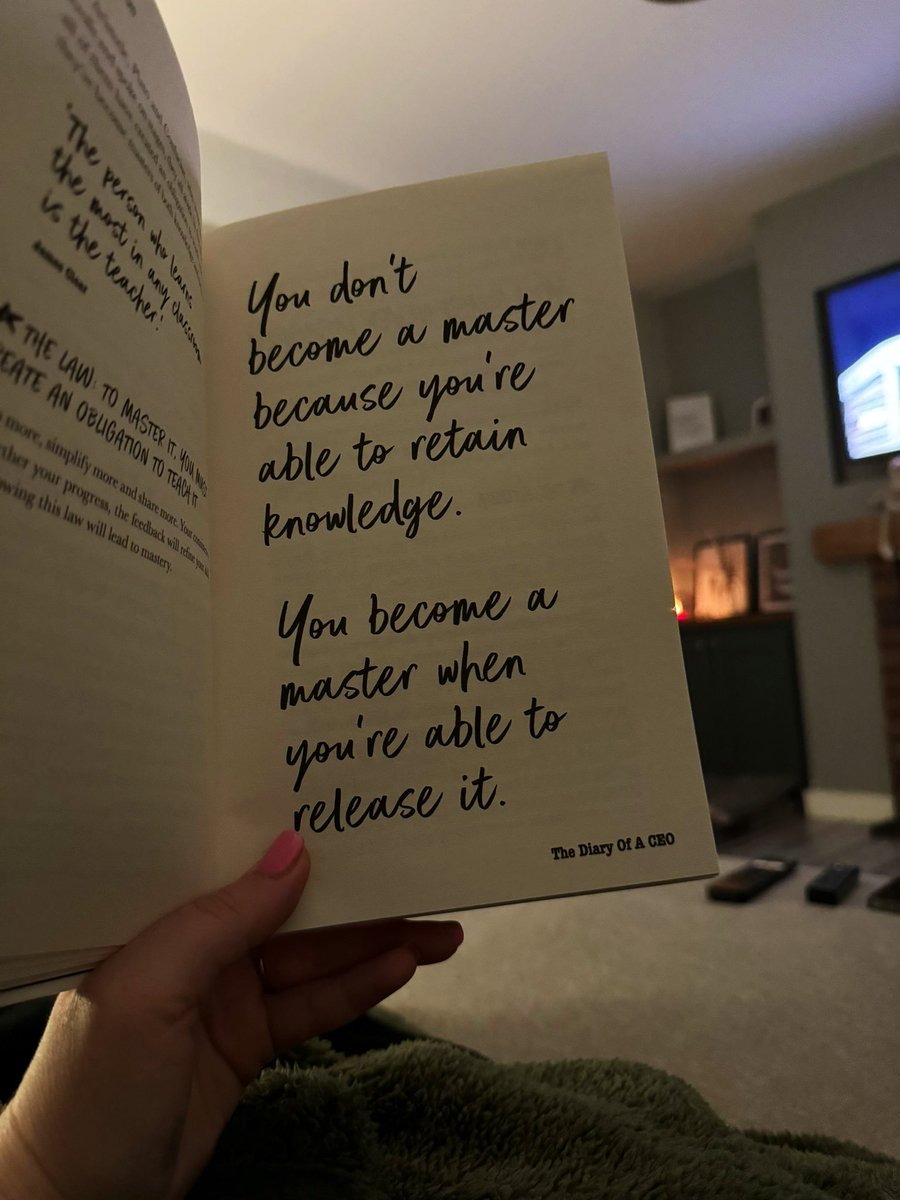 'The person who learns
the most in any classroom
is the teacher.'
James Clear
THE LAW: TO MASTER IT, YOU MUST
CREATE AN OBLIGATION TO TEACH IT
more, simplify more and share more. Your
your progress, the feedback will refine your
this law will lead to mastery.
You don't
become a master
because you're
able to retain
knowledge.
You become a
master when
you're able to
release it.
The Diary Of A CEO